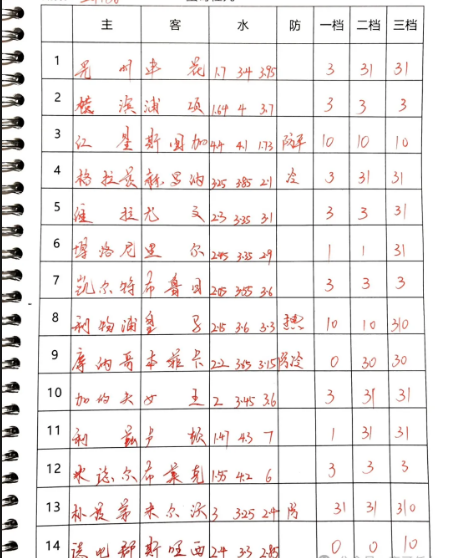 主 客 水 防 一档 二档 三档
1 光州 申花 1.7 3.4 3.95 3 31 31
2 横滨 浦项 1.64 4 3.7 3 3 3
3 红星 斯图加 4.4 4.1 1.73 防平 10 10 10
4 格拉茨 赫罗纳 3.25 3.85 2.1 冷 3 31 31
5 维拉 尤文 2.3 3.35 3.1 3 3 31
6 博洛尼 里尔 2.45 3.35 2.9 1 1 31
7 凯尔特 布鲁日 2.05 3.55 3.6 3 3 3
8 利物浦 皇马 2.15 3.6 3.3 10 10 310
9 摩纳哥 本菲卡 2.2 3.65 3.15 防冷 0 30 30
10 加的夫 女王 2 3.45 3.6 3 31 31
11 利兹 卢顿 1.47 4.3 7 1 31 31
12 米德尔 布莱克 1.55 4.2 6 3 3 3
13 朴茨茅 米尔沃 3 3.25 2.4 防 31 31 310
14 郡 斯旺西 2.4 3.3 2.85 0 0 10